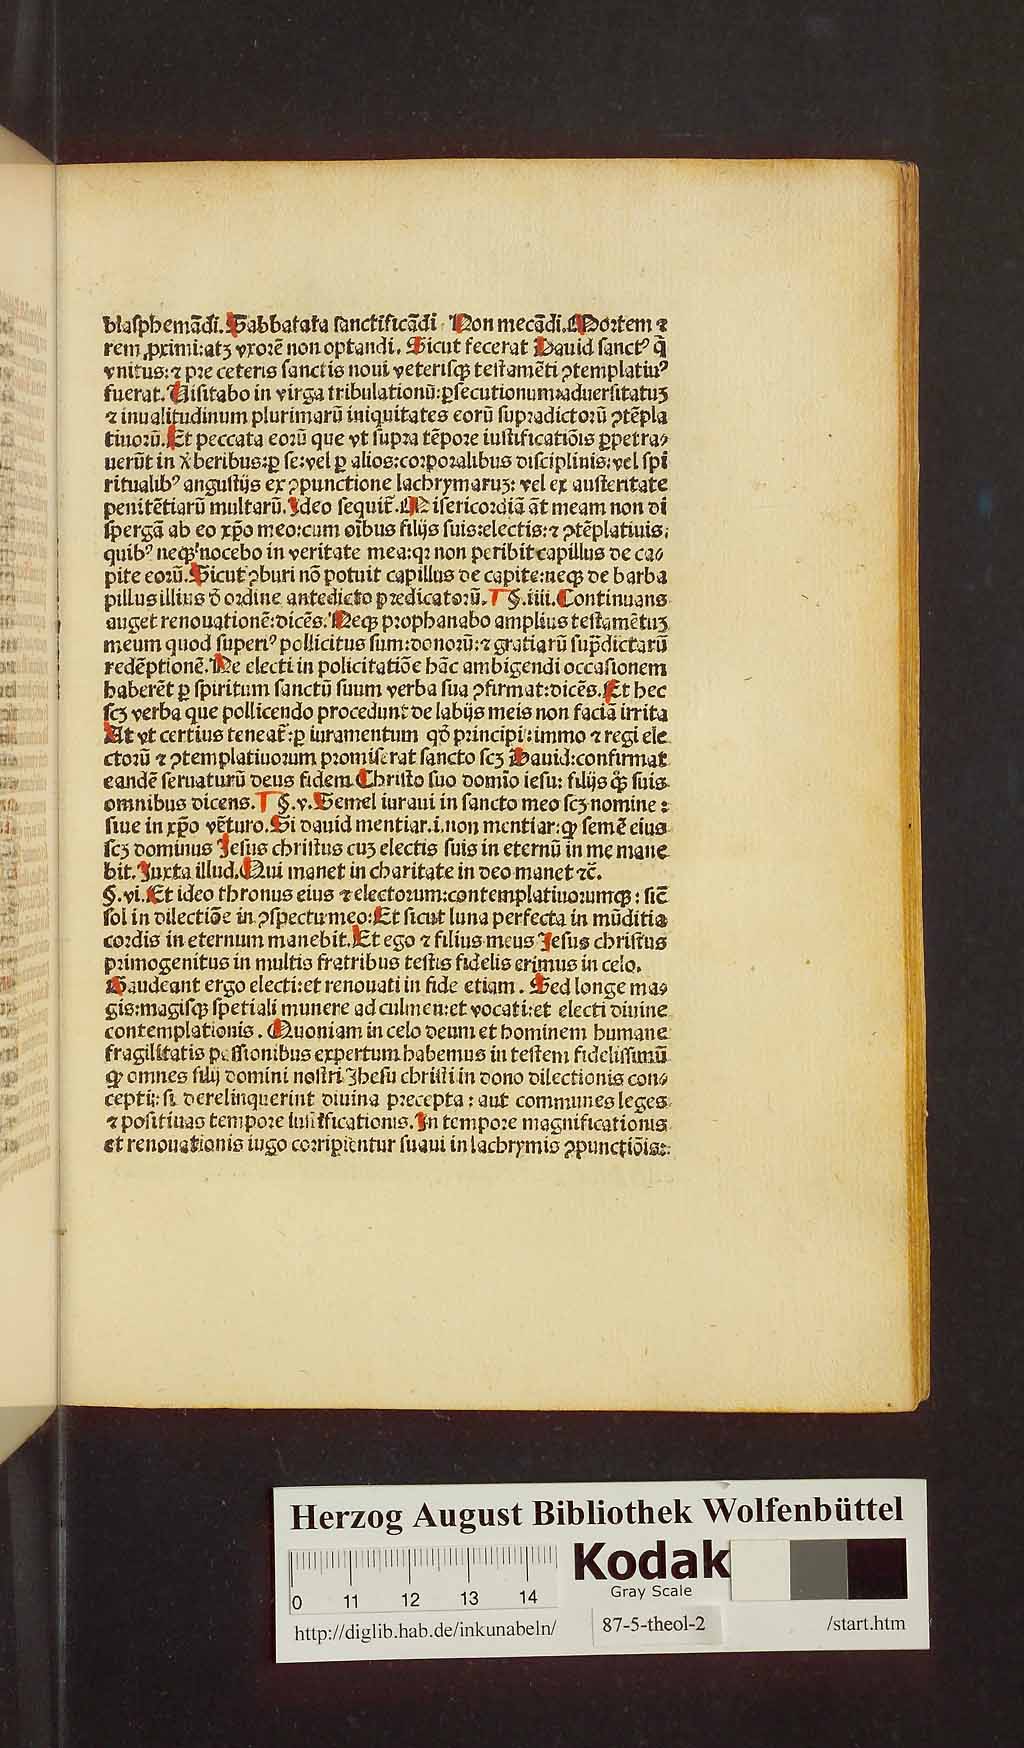 blasphemādi. Sabbatata sanctificādi Non mecādi. Mortem ⁊
rem ꝓximi: atꝫ vxorē non optandi. Sicut fecerat Dauid sanctꝰ q̄
vnitus: ⁊ pre ceteris sanctis noui veterisqꝫ testamēti ꝯtemplatiuꝰ
fuerat. Uisitabo in virga tribulationū: ꝑsecutionum: aduersitatuꝫ
⁊ inualitudinum plurimarū iniquitates eorū supradictorū ꝯtēpla
tiuorū. Et peccata eorū que vt supra tēpore iustificatiōis ꝑpetra⸗
uerūt in beribus: ꝑ se: vel ꝑ alios: corporalibus disciplinis: vel spī
ritualibꝰ angustijs ex ꝯpunctione lachrymaruꝫ: vel ex austeritate
penitētiarū multarū. Ideo sequit̄. Misericordiā āt meam non di
spergā ab eo xp̄o meo: cum oībus filijs suis: electis: ⁊ ꝯtēplatiuis.
quibꝰ neqꝫ nocebo in veritate mea: qꝛ non peribit capillus de ca⸗
pite eorū. Sicut ꝯburi nō potuit capillus de capite: neqꝫ de barba
pillus illius ordine antedicto predicatorū. §. iiii. Continuans
auget renouationē: dicēs. Neqꝫ prophanabo amplius testamētuꝫ
meum quod superiꝰ pollicitus sum: donorū: ⁊ gratiarū sup̄dictarū
redēptionē. Ne electi in policitatiōe hāc ambigendi occasionem
haberēt ꝑ spiritum sanctū suum verba sua ꝯfirmat: dicēs. Et hec
scꝫ verba que pollicendo procedunt de labijs meis non faciā irrita
At vt certius teneat̄: ꝑ iuramentum qd̄ principi: immo ⁊ regi ele
ctorū ⁊ ꝯtemplatiuorum promiserat sancto scꝫ Dauid: confirmat
eandē seruaturū deus fidem Christo suo domīo iesu: filijs suis
omnibus dicens. §. v. Semel iuraui in sancto meo scꝫ nomine:
siue in xp̄o vēturo. Si dauid mentiar. i. non mentiar: qꝫ semē eius
scꝫ dominus Jesus christus cuꝫ electis suis in eternū in me mane
bit. Juxta illud. Qui manet in charitate in deo manet ⁊c̄.
§. vi. Et ideo thronus eius ⁊ electorum: contemplatiuorumqꝫ: sic̄
sol in dilectiōe in ꝯspectu meo: Et sicut luna perfecta in mūditia
cordis in eternum manebit. Et ego ⁊ filius meus Jesus christus
primogenitus in multis fratribus testis fidelis erimus in celo.
Gaudeant ergo electi: et renouati in fide etiam. Sed longe ma⸗
gis: magisqꝫ spetiali munere ad culmen: et vocati: et electi diuine
contemplationis. Quoniam in celo deum et hominem humane
fragilitatis passionibus expertum habemus in testem fidelissimū
qꝫ omnes filij domini nostri Jhesu christi in dono dilectionis con⸗
cepti: si derelinquerint diuina precepta: aut communes leges
⁊ positiuas tempore iustificationis. In tempore magnificationis
et renouationis iugo corripientur suaui in lachrymis ꝯpunctiōis:
Herzog August Bibliothek Wolfenbüttel
Kodak
Gray Scale
0 11 12 13 14
http://diglib.hab.de/inkunabeln/ 87-5-theol-2 /start.htm